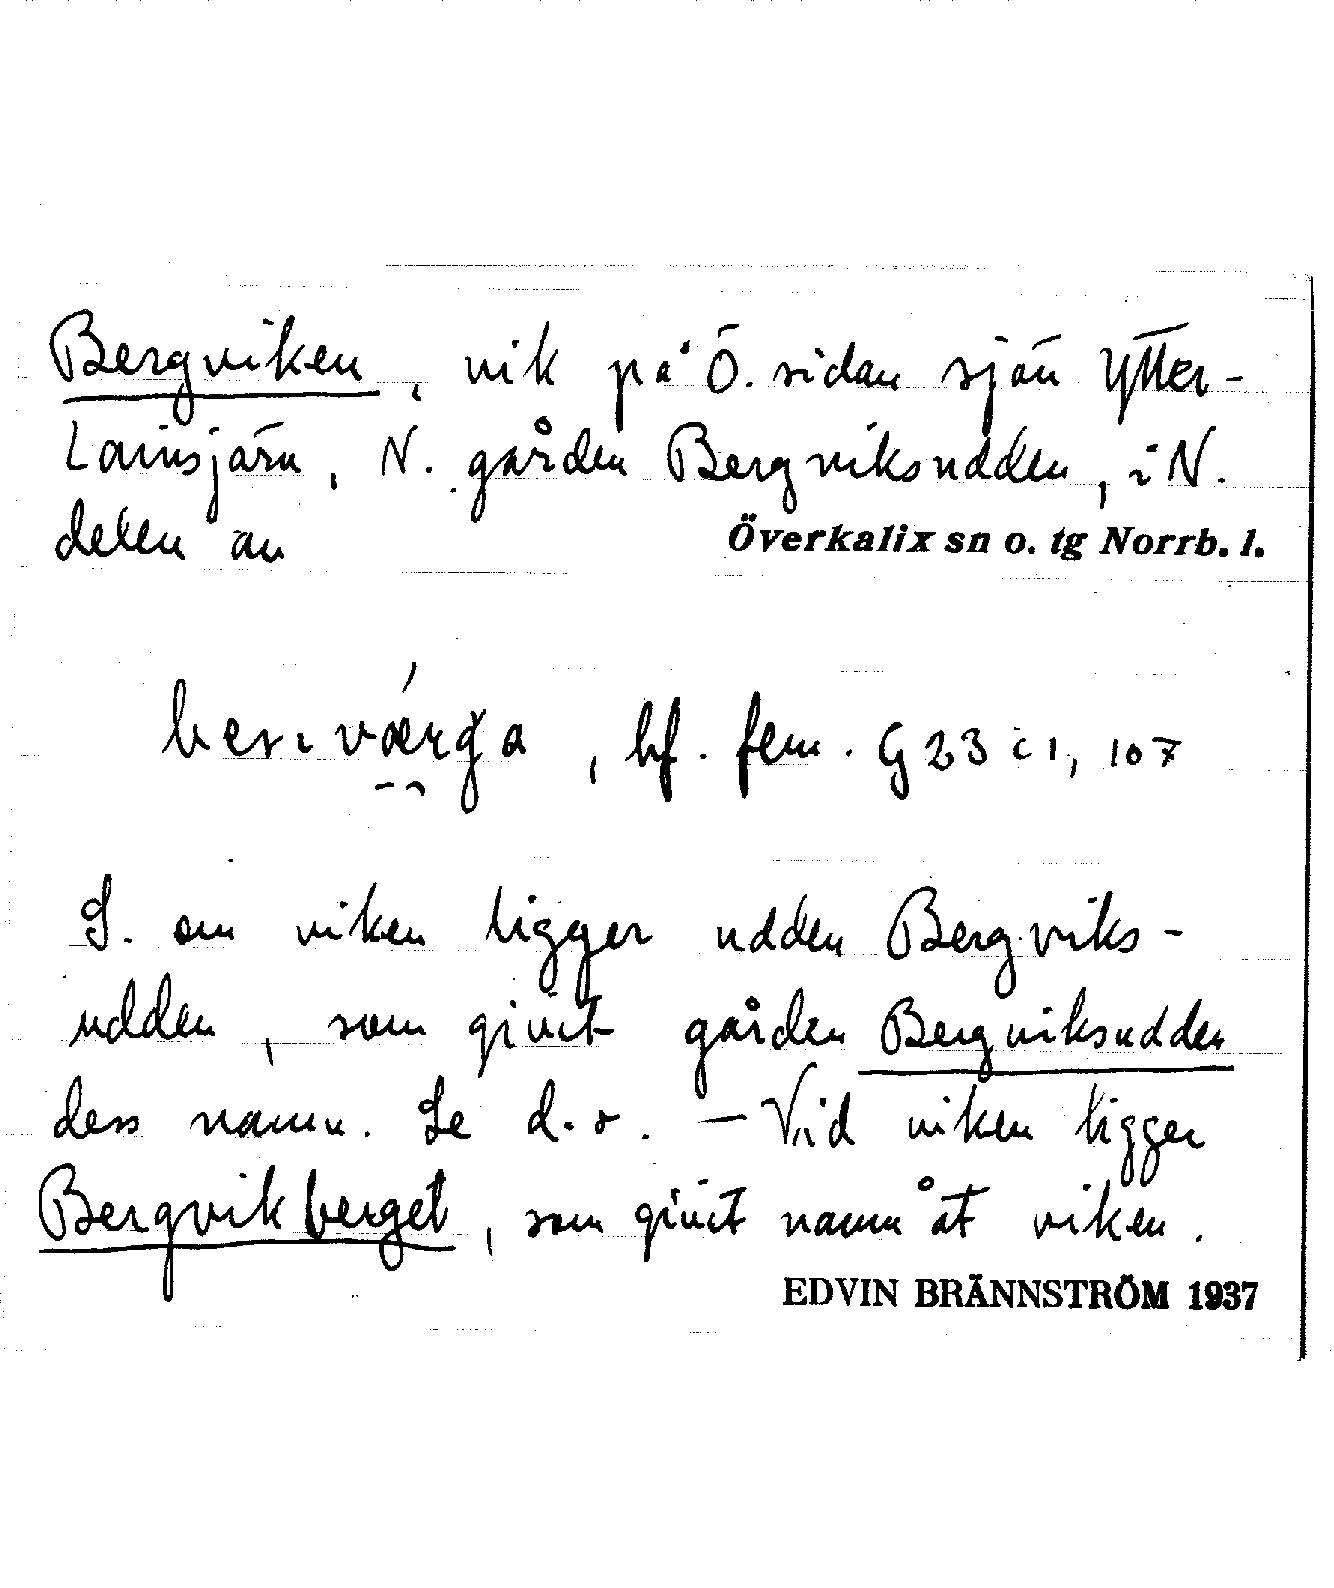 Bergviken, vik på Ö. sidan sjön Ytter-
Lainsjärn, N. gården Bergviksudden, i N.
delen av Överkalix sn o. tg Norrb. l.
, bf. fem. G 23 c 1, 107
S. om viken ligger udden Bergviks-
udden, som givit gården Bergviksudden
dess namn. Se d. o. — Vid viken ligger
Bergvikberget, som givit namn åt viken.
EDVIN BRÄNNSTRÖM 1937